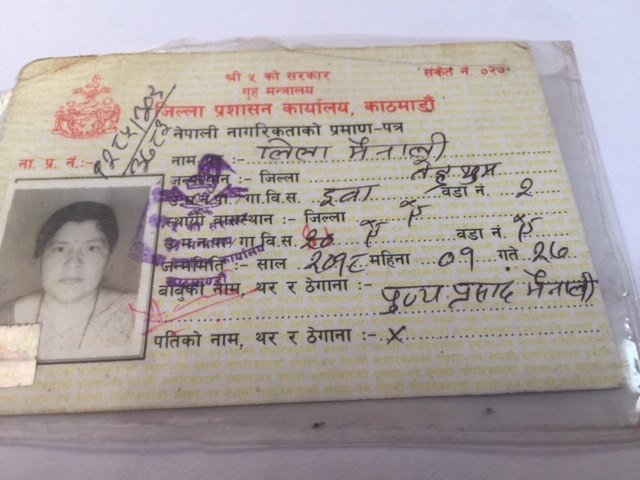 श्री ५ को सरकार
संकेत नं. ०२७
गृह मन्त्रालय
जिल्ला प्रशासन कार्यालय, काठमाडौं
नेपाली नागरिकताको प्रमाण-पत्र
ना. प्र. नं.:-
नाम थर :- लिला मैनाली
जन्मस्थान :- जिल्ला तेह्रथुम
गा.वि.स. इवा वडा नं. २
स्थायी वासस्थान :- जिल्ला ऐ ऐ
गा.वि.स. ऐ वडा नं. ऐ
जन्ममिति :- साल २०१८ महिना ०१ गते २७
बाबुको नाम, थर र ठेगाना :- पुण्य प्रसाद मैनाली
पतिको नाम, थर र ठेगाना :- X